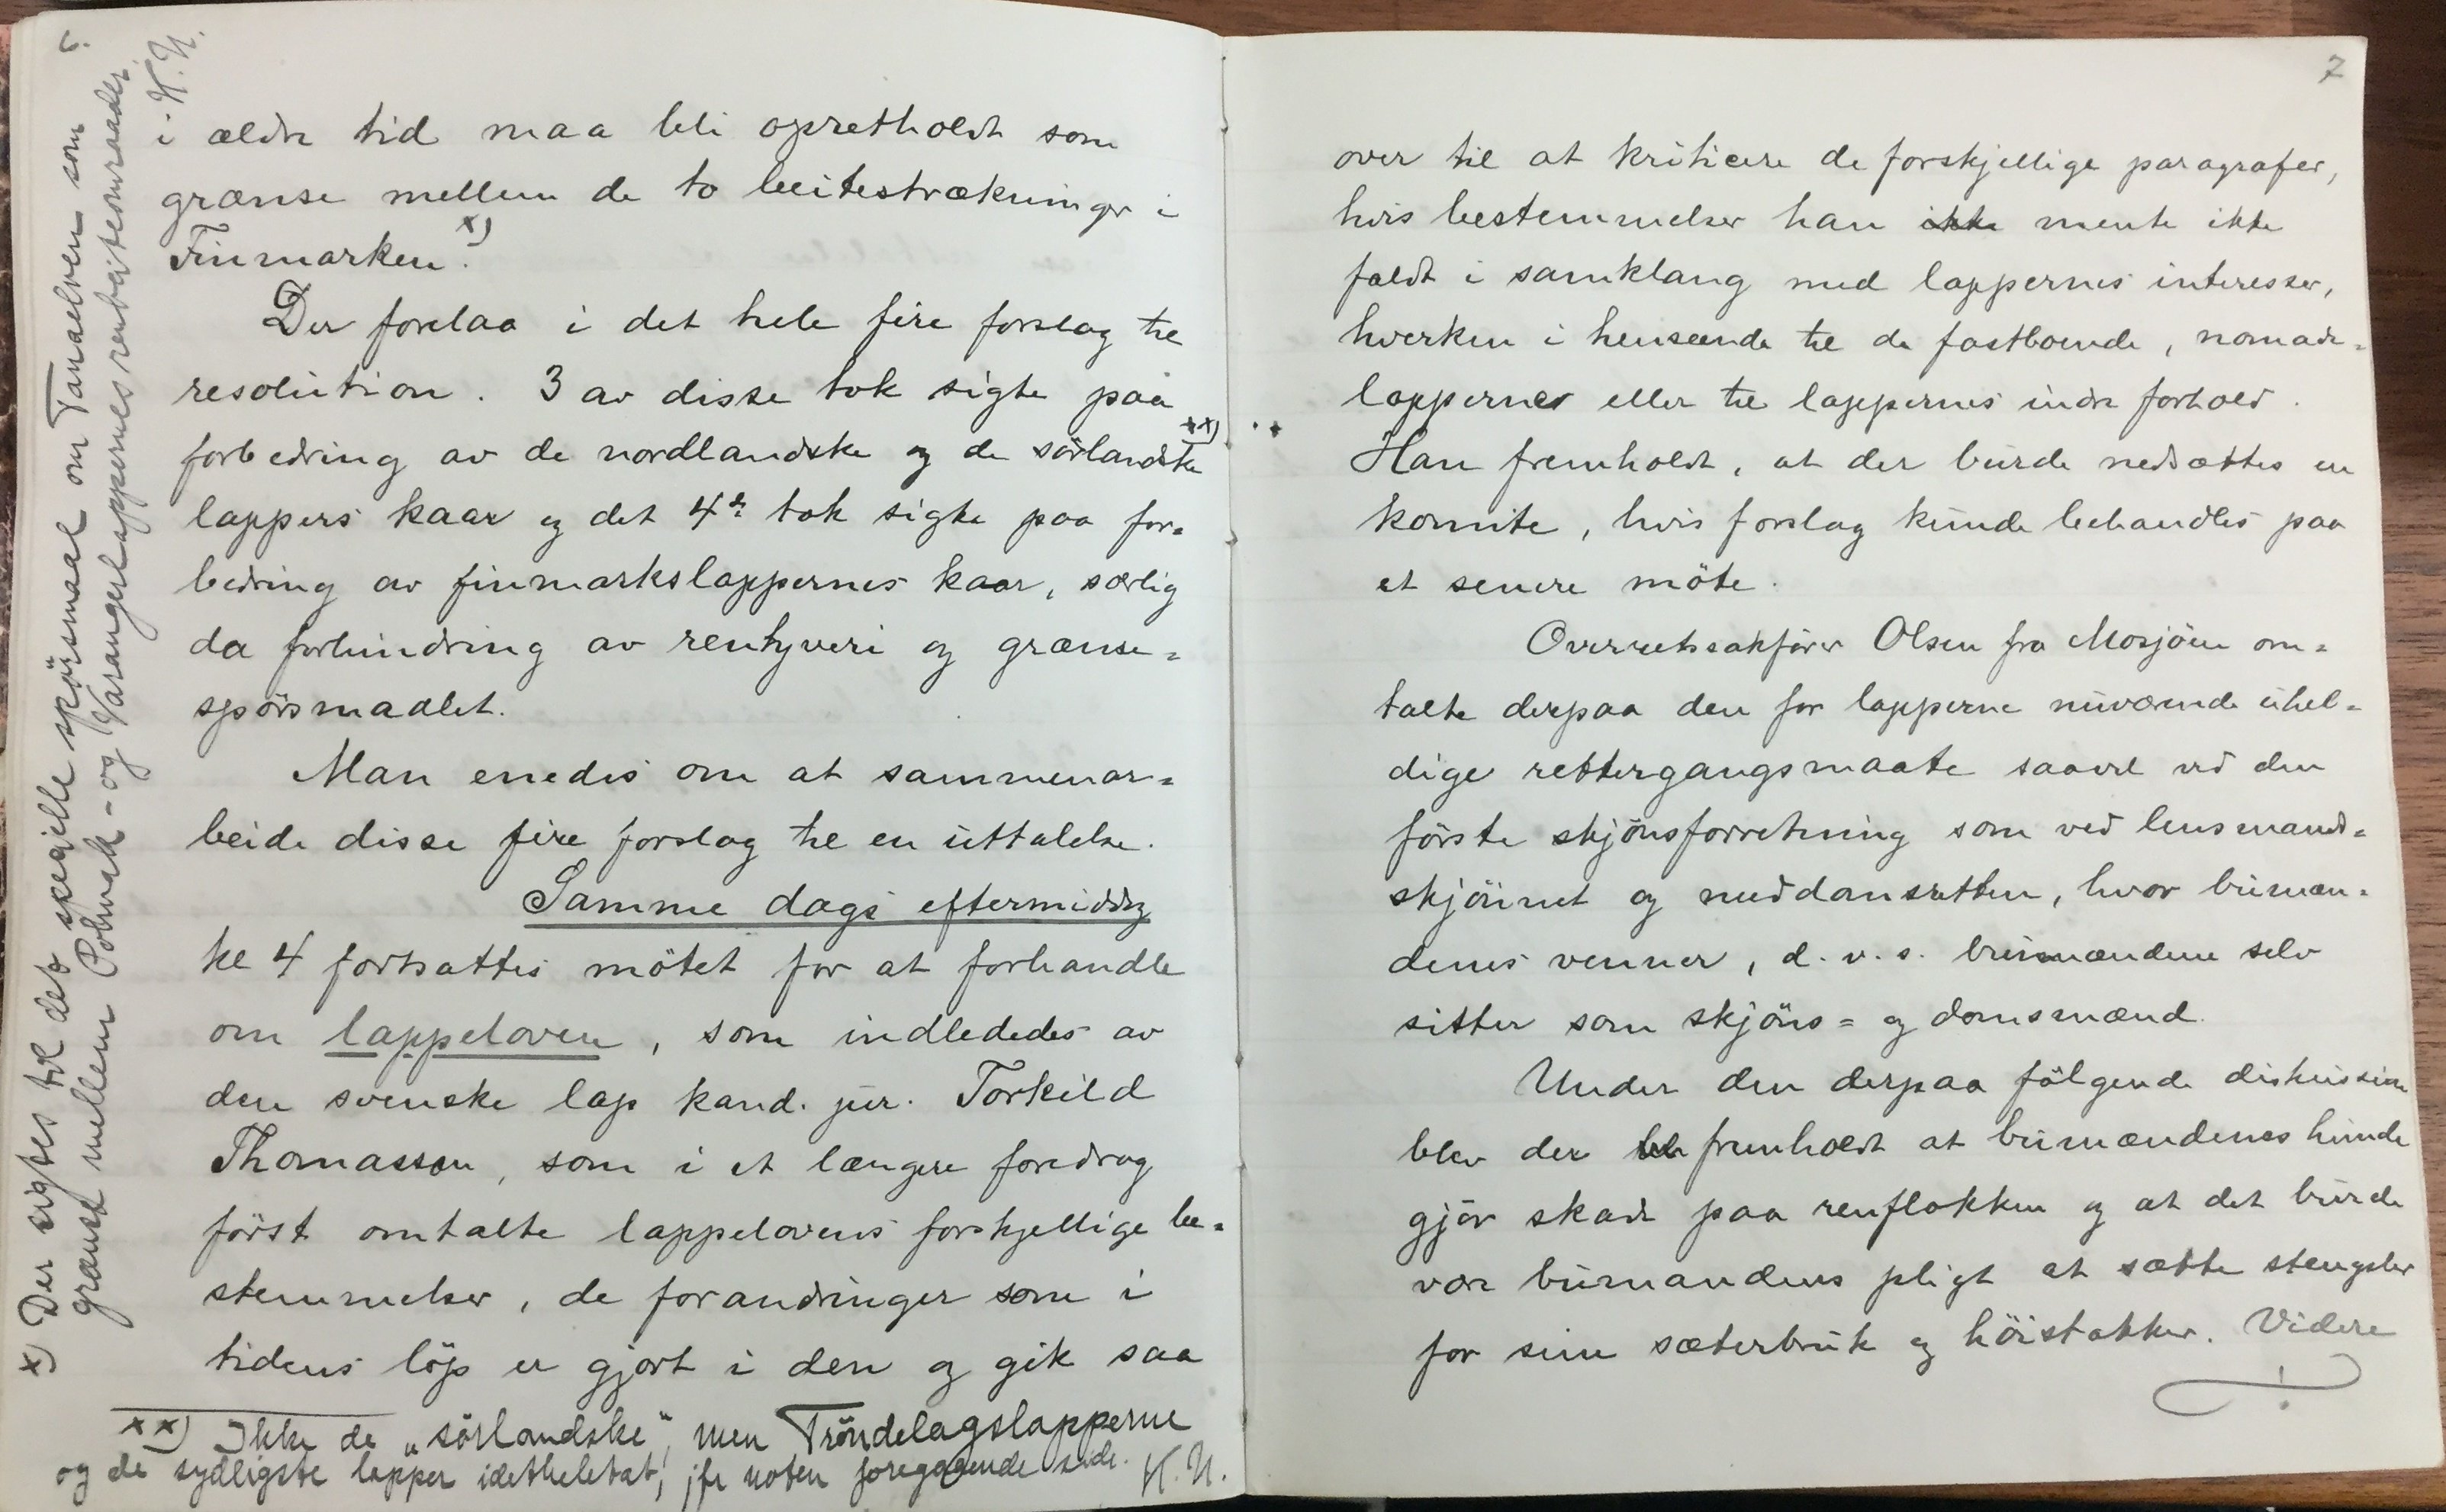 6.
i ældre tid maa bli opretholdt som
grænse mellem de to beitestrækninger i
Finmarken. x)
Der forelaa i det hele fire forslag til
resolution. 3 av disse tok sigte paa
forbedring av de nordlandske og de sörlandske xx)
lappers kaar og det 4de tok sigte paa for=
bedring av finmarkslappernes kaar, særlig
da forhindring av rentyveri og grænse=
spörsmaalet.
Man enedes om at sammenar=
beide disse fire forslag til en uttalelse.
Samme dags eftermiddag
kl 4 fortsattes mötet for at forhandle
om lappeloven, som indlededes av
den svenske lap kand. jur. Torkild
Thomasson, som i et længere foredrag
först omtalte lappelovens forskjellige be=
stemmelser, de forandringer som i
tidens löp er gjort i den og gik saa
xx) Ikke de „sörlandske", men Tröndelagslapperne
og de sydligste lapper idetheletat, jfr noten foregaaende side. K.N.
x) Der sigtes til det spesielle spörsmaal om Tanaelven som
grænse mellem Polmak- og Varangerlappernes renbeiteomraader.
K.N.
7
over til at kriticere de forskjellige paragrafer,
hvis bestemmelser han ikke mente ikke
faldt i samklang med lappernes interesser,
hverken i henseende til de fastboende, nomade=
lappernes eller til lappernes indre forhold.
Han fremholdt, at der burde nedsættes en
komite, hvis forslag kunde behandles paa
et senere möte.
Overretssakförer Olsen fra Mosjöen om=
talte derpaa den for lapperne nuværende uhel=
dige rettergangsmaate saavel ved den
förste skjönsforretning som ved lensmands=
skjönnet og meddomsretten, hvor bumæn=
denes venner, d.v.s. bumændene selv
sitter som skjöns= og domsmænd.
Under den derpaa fölgende diskussion
blev der ble fremholdt at bumændenes hunde
gjör skade paa renflokken og at det burde
være bumandens pligt at sætte stengsler
for sine sæterbruk og höistakker. Videre